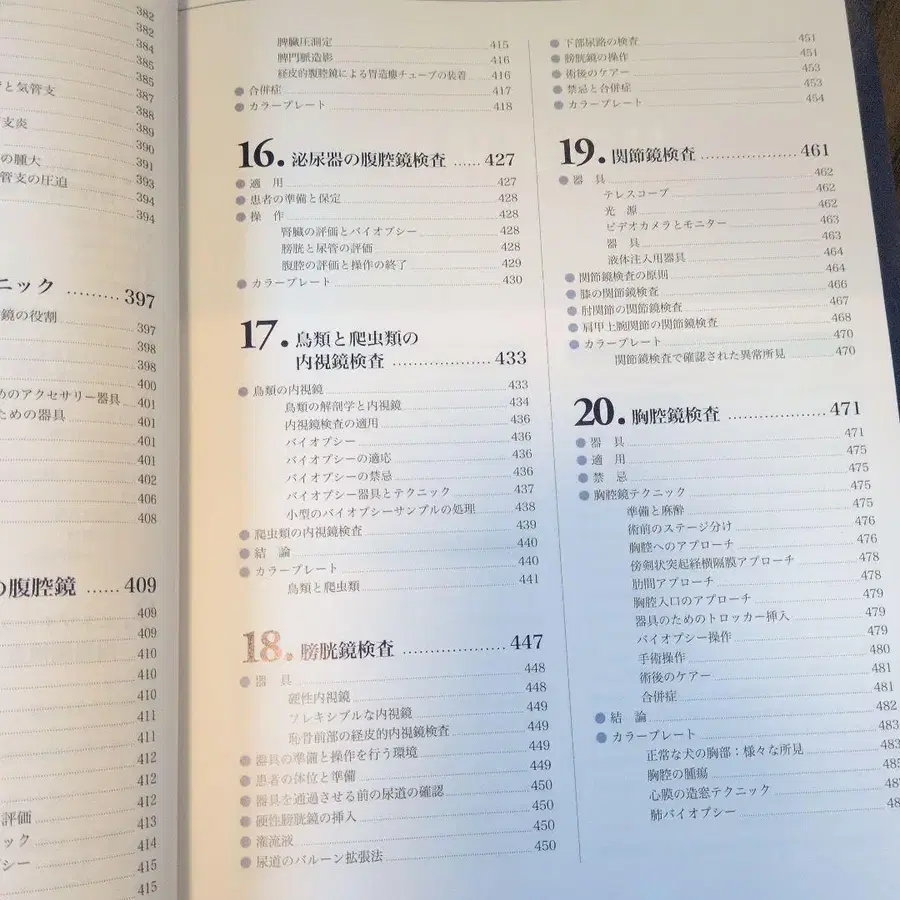 382
382
384
385
385
と気管支 387
388
支炎 389
390
の腫大 391
管支の圧迫 393
394
394
ニック ......... 397
鏡の役割 397
398
398
400
めのアクセサリー器具 401
ための器具 401
401
401
402
406
408
の腹腔鏡 ...... 409
409
409
410
410
410
411
411
412
412
評価 412
ック 413
プシー 414
415
415
脾臓圧測定 415
脾門脈造影 416
経皮的腹腔鏡による胃造瘻チューブの装着 416
● 合併症 417
● カラープレート 418
16. 泌尿器の腹腔鏡検査 ...... 427
● 適 用 427
● 患者の準備と保定 428
● 操 作 428
腎臓の評価とバイオプシー 428
膀胱と尿管の評価 428
腹腔の評価と操作の終了 429
● カラープレート 430
17. 鳥類と爬虫類の
内視鏡検査 .................. 433
● 鳥類の内視鏡 433
鳥類の解剖学と内視鏡 434
内視鏡検査の適用 436
バイオプシー 436
バイオプシーの適応 436
バイオプシーの禁忌 436
バイオプシー器具とテクニック 437
小型のバイオプシーサンプルの処理 438
● 爬虫類の内視鏡検査 439
● 結 論 440
● カラープレート 440
鳥類と爬虫類 441
18. 膀胱鏡検査 ................... 447
● 器 具 448
硬性内視鏡 448
フレキシブルな内視鏡 449
恥骨前部の経皮的内視鏡検査 449
● 器具の準備と操作を行う環境 449
● 患者の体位と準備 449
● 器具を通過させる前の尿道の確認 450
● 硬性膀胱鏡の挿入 450
● 灌流液 450
● 尿道のバルーン拡張法 450
● 下部尿路の検査 451
● 膀胱鏡の操作 451
● 術後のケアー 453
● 禁忌と合併症 453
● カラープレート 454
19. 関節鏡検査 ................... 461
● 器 具 462
テレスコープ 462
光 源 462
ビデオカメラとモニター 463
器 具 463
液体注入用器具 464
● 関節鏡検査の原則 464
● 膝の関節鏡検査 466
● 肘関節の関節鏡検査 467
● 肩甲上腕関節の関節鏡検査 468
● カラープレート 470
関節鏡検査で確認された異常所見 470
20. 胸腔鏡検査 ................... 471
● 器 具 471
● 適 用 475
● 禁 忌 475
● 胸腔鏡テクニック 475
準備と麻酔 475
術前のステージ分け 476
胸腔へのアプローチ 476
傍剣状突起経横隔膜アプローチ 478
肋間アプローチ 478
胸腔入口のアプローチ 479
器具のためのトロッカー挿入 479
バイオプシー操作 479
手術操作 480
術後のケアー 481
合併症 481
● 結 論 482
● カラープレート 483
正常な犬の胸部：様々な所見 483
胸腔の腫瘍
心膜の造窓テクニック
肺バイオプシー